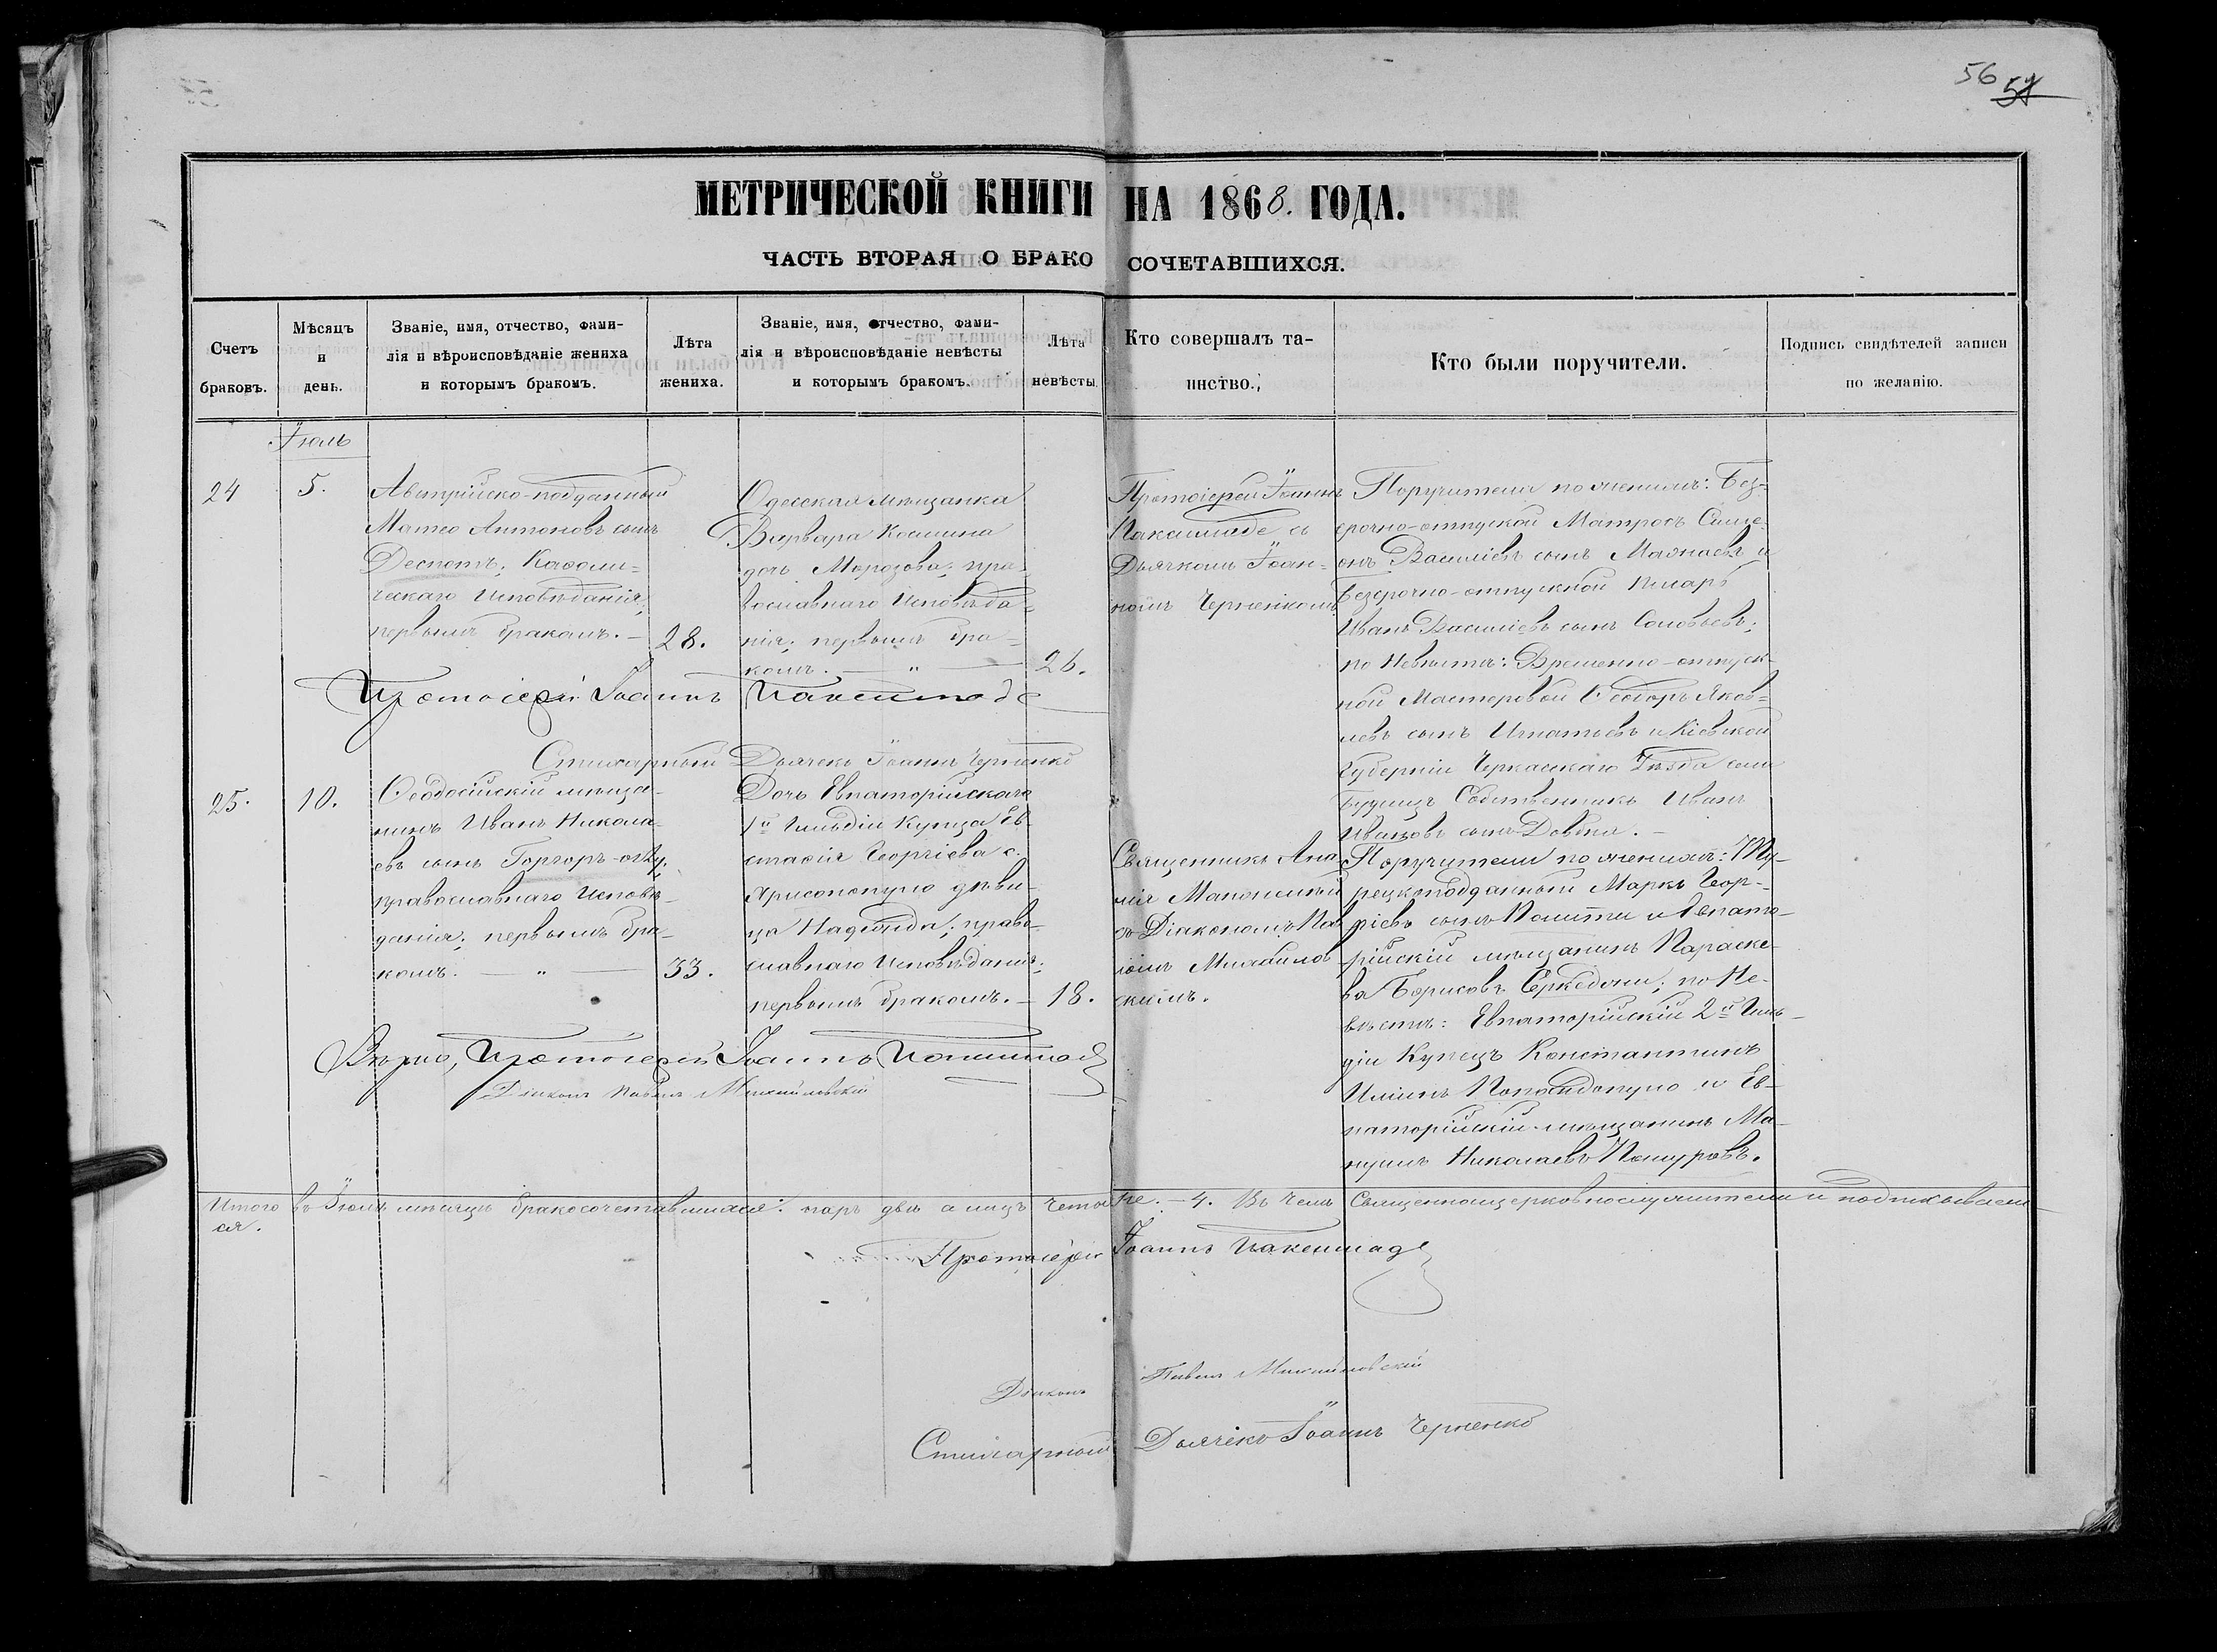 56 57
МЕТРИЧЕСКОЙ КНИГИ НА 1868. ГОДА.
ЧАСТЬ ВТОРАЯ О БРАКОСОЧЕТАВШИХСЯ.
Счетъ
браковъ.
Мѣсяцъ
и
день.
Званіе, имя, отчество, фами-
лія и вѣроисповѣданіе жениха
и которымъ бракомъ.
Лѣта
жениха.
Званіе, имя, отчество, фами-
лія и вѣроисповѣданіе невѣсты
и которымъ бракомъ.
Лѣта
невѣсты.
Кто совершалъ та-
инство.
Кто были поручители.
Подпись свидѣтелей записи
по желанію.
Іюль
24
5.
Австрійско-подданный
Матео Антоновъ сынъ
Деспотъ; Каѳоли-
ческаго Исповѣданія,
первымъ бракомъ. —
28.
Одесская мѣщанка
Варвара Косьмина
дочь Морозова; пра-
вославнаго Исповѣда-
нія; первымъ бра-
комъ. — " —
26.
Протоіерей Іоаннъ
Пакситаде съ
Дьячкомъ Іоан-
номъ Черненкомъ
Поручители по женихѣ: Без-
срочно-отпуской Матросъ Симе-
онъ Василіевъ сынъ и
Безсрочно-отпускной Писарь
Иванъ Василіевъ сынъ Соловьевъ;
по Невѣстѣ: Временно-отпуск-
ной Мастеровой Ѳеодоръ Яков-
левъ сынъ Игнатьевъ и Кіевской
Губерніи Черкаскаго Уѣзда села
Будищъ Собственникъ Иванъ
Ивановъ сынъ Довбня. —
Протоіерей Іоаннъ Пакситаде
Стихарный Дьячекъ Іоаннъ Черненко
25.
10.
Ѳеодосійскій мѣща-
нинъ Иванъ Никола-
евъ сынъ
православнаго Исповѣ-
данія; первымъ бра-
комъ. — " —
33.
Дочь Евпаторійскаго
1й Гильдіи Купца Ев-
стафія Георгіева с.
Арисонопуло дѣви-
ца Надежда; право-
славнаго Исповѣданія;
первымъ бракомъ. —
18.
Священникъ
съ Діакономъ Пав-
ломъ Михайлов-
скимъ.
Поручители по женихѣ: Ту-
рецкоподданный Маркъ Геор-
гіевъ сынъ и Евпато-
рійскій мѣщанинъ Параске-
ва Борисовъ; по Не-
вѣстѣ: Евпаторійскій 2й Гиль-
діи Купецъ Константинъ
Ильинъ Попандопуло и Ев-
паторійскій мѣщанинъ Ма-
нуилъ Николаевъ
Вѣрно, Протоіерей Іоаннъ Пакситаде
Діаконъ Павелъ Михайловскій
Итого въ Іюлѣ мѣсяцѣ бракосочетавшихся: паръ двѣ а лицъ четыре. — 4. Въ чемъ Священноцерковнослужители и подписываем-
ся.
Протоіерей Іоаннъ Пакситаде
Діаконъ Павелъ Михайловскій
Стихарный Дьячекъ Іоаннъ Черненко